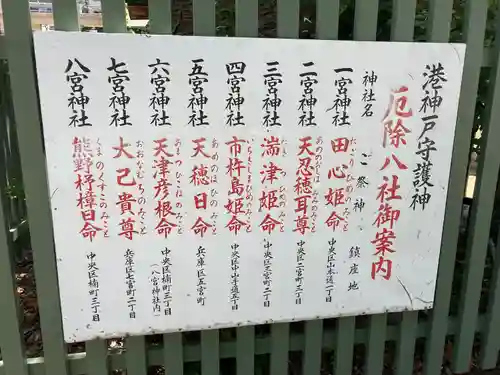 港神戸守護神
厄除八社御案内
神社名
ご祭神
鎮座地
一宮神社
田心姫命
たごりひめのみこと
中央区山本通一丁目
二宮神社
天忍穂耳尊
あめのおしほみみのみこと
中央区二宮町三丁目
三宮神社
湍津姫命
たぎつひめのみこと
中央区三宮町二丁目
四宮神社
市杵島姫命
いちきしまひめのみこと
中央区中山手通五丁目
五宮神社
天穂日命
あめのほひのみこと
兵庫区五宮町
六宮神社
天津彦根命
あまつひこねのみこと
中央区楠町三丁目
(八宮神社内)
七宮神社
大己貴尊
おおなむちのみこと
兵庫区七宮町二丁目
八宮神社
熊野杼樟日命
くまのくすひのみこと
中央区楠町三丁目